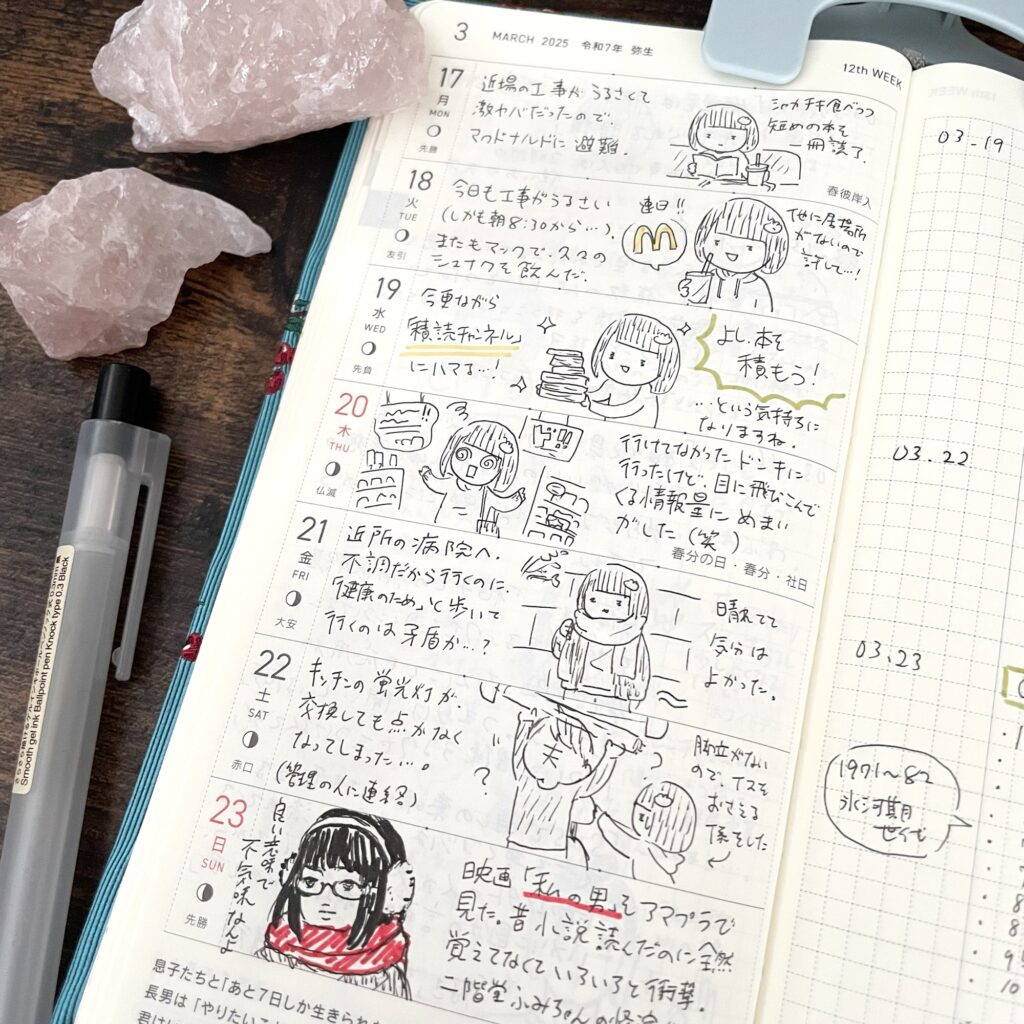 3 MARCH 2025 令和7年 弥生
12th WEEK
17
月
MON
先勝
近場の工事がうるさくて
激ヤバだったので、
マクドナルドに避難.
シャカチキ食べつつ
短めの本を
一冊読了.
春彼岸入
18
火
TUE
友引
今日も工事がうるさい
(しかも朝8:30から…).
またもマックで、久々の
シュナクを飲んだ.
連日!!
他に居場所
がないので
許して…!
19
水
WED
先負
今更ながら
「積読チャンネル」
にハマる…!
よし、本を
積もう!
…という気持ちに
なりますね.
20
木
THU
仏滅
行けてなかったドンキに
行ったけど、目に飛びこんで
くる情報量にめまい
がした(笑)
春分の日・春分・社日
21
金
FRI
大安
近所の病院へ.
不調だから行くのに、
「健康のため」と歩いて
行くのは矛盾か…?
晴れてて
気分は
よかった。
22
土
SAT
赤口
キッチンの蛍光灯が、
交換しても点かなく
なってしまった…。
(管理の人に連絡)
?
脚立がない
ので、イスを
おさえる
係をした
23
日
SUN
先勝
良い意味で
不気味なんよ
映画「私の男」をアマプラで
見た。昔小説読んだのに全然
覚えてなくていろいろと衝撃.
二階堂ふみちゃんの
息子たちと「あと7日しか生きられ
長男は「やりたいこ
君は
03-19
03.22
03.23
1971~82
氷河期
世代
Smooth gel ink Ballpoint pen Knock type 0.3 Black